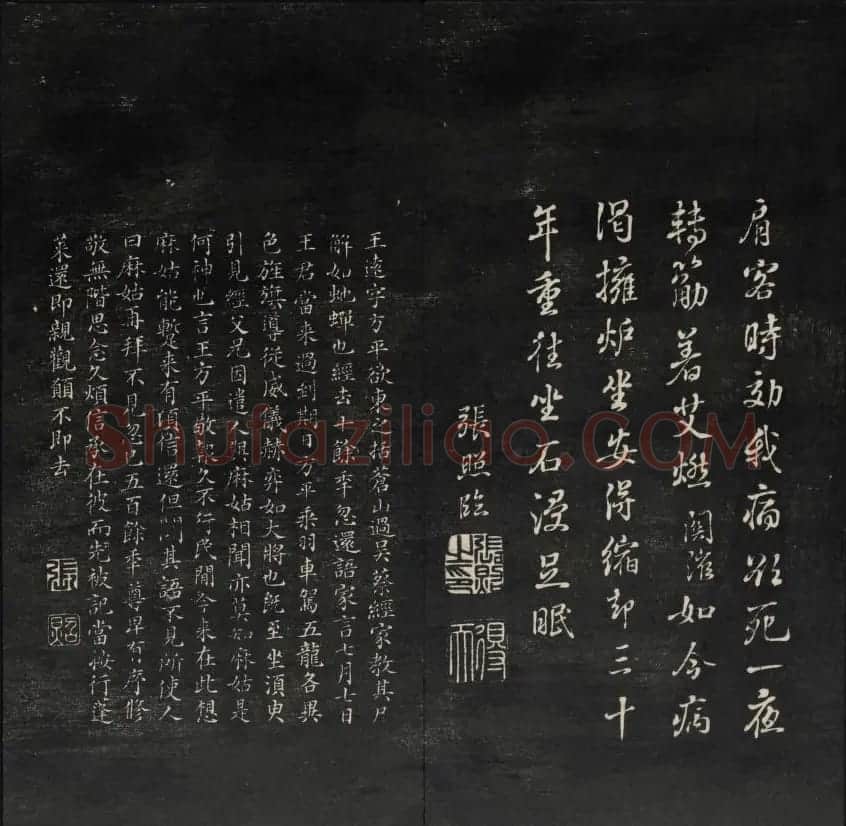 肩客時効我病欲死一夜
轉筋著艾燃關灌如今病
渴擁炉坐安得縮却三十
年重往坐石浸足眠
張照臨
張照之印
得天
王遠字方平欲東之括蒼山過吳蔡經家教其尸
解如虵蟬也經去十餘年忽還語家言七月七日
王君當来過到期日方平乘羽車駕五龍各異
色旌旗導從威儀赫弈如大將也既至坐須臾
引見經父兄因遣人與麻姑相聞亦莫知麻姑是
何神也言王方平敬報久不行民間今来在此想
麻姑能暫来有頃信還但聞其語不見所使人
曰麻姑再拜不見忽已五百餘年尊卑有序修
敬無階思念久煩信承在彼而先被記當按行蓬
萊還即親覲願不即去
張
照
Shufaziliao.COM